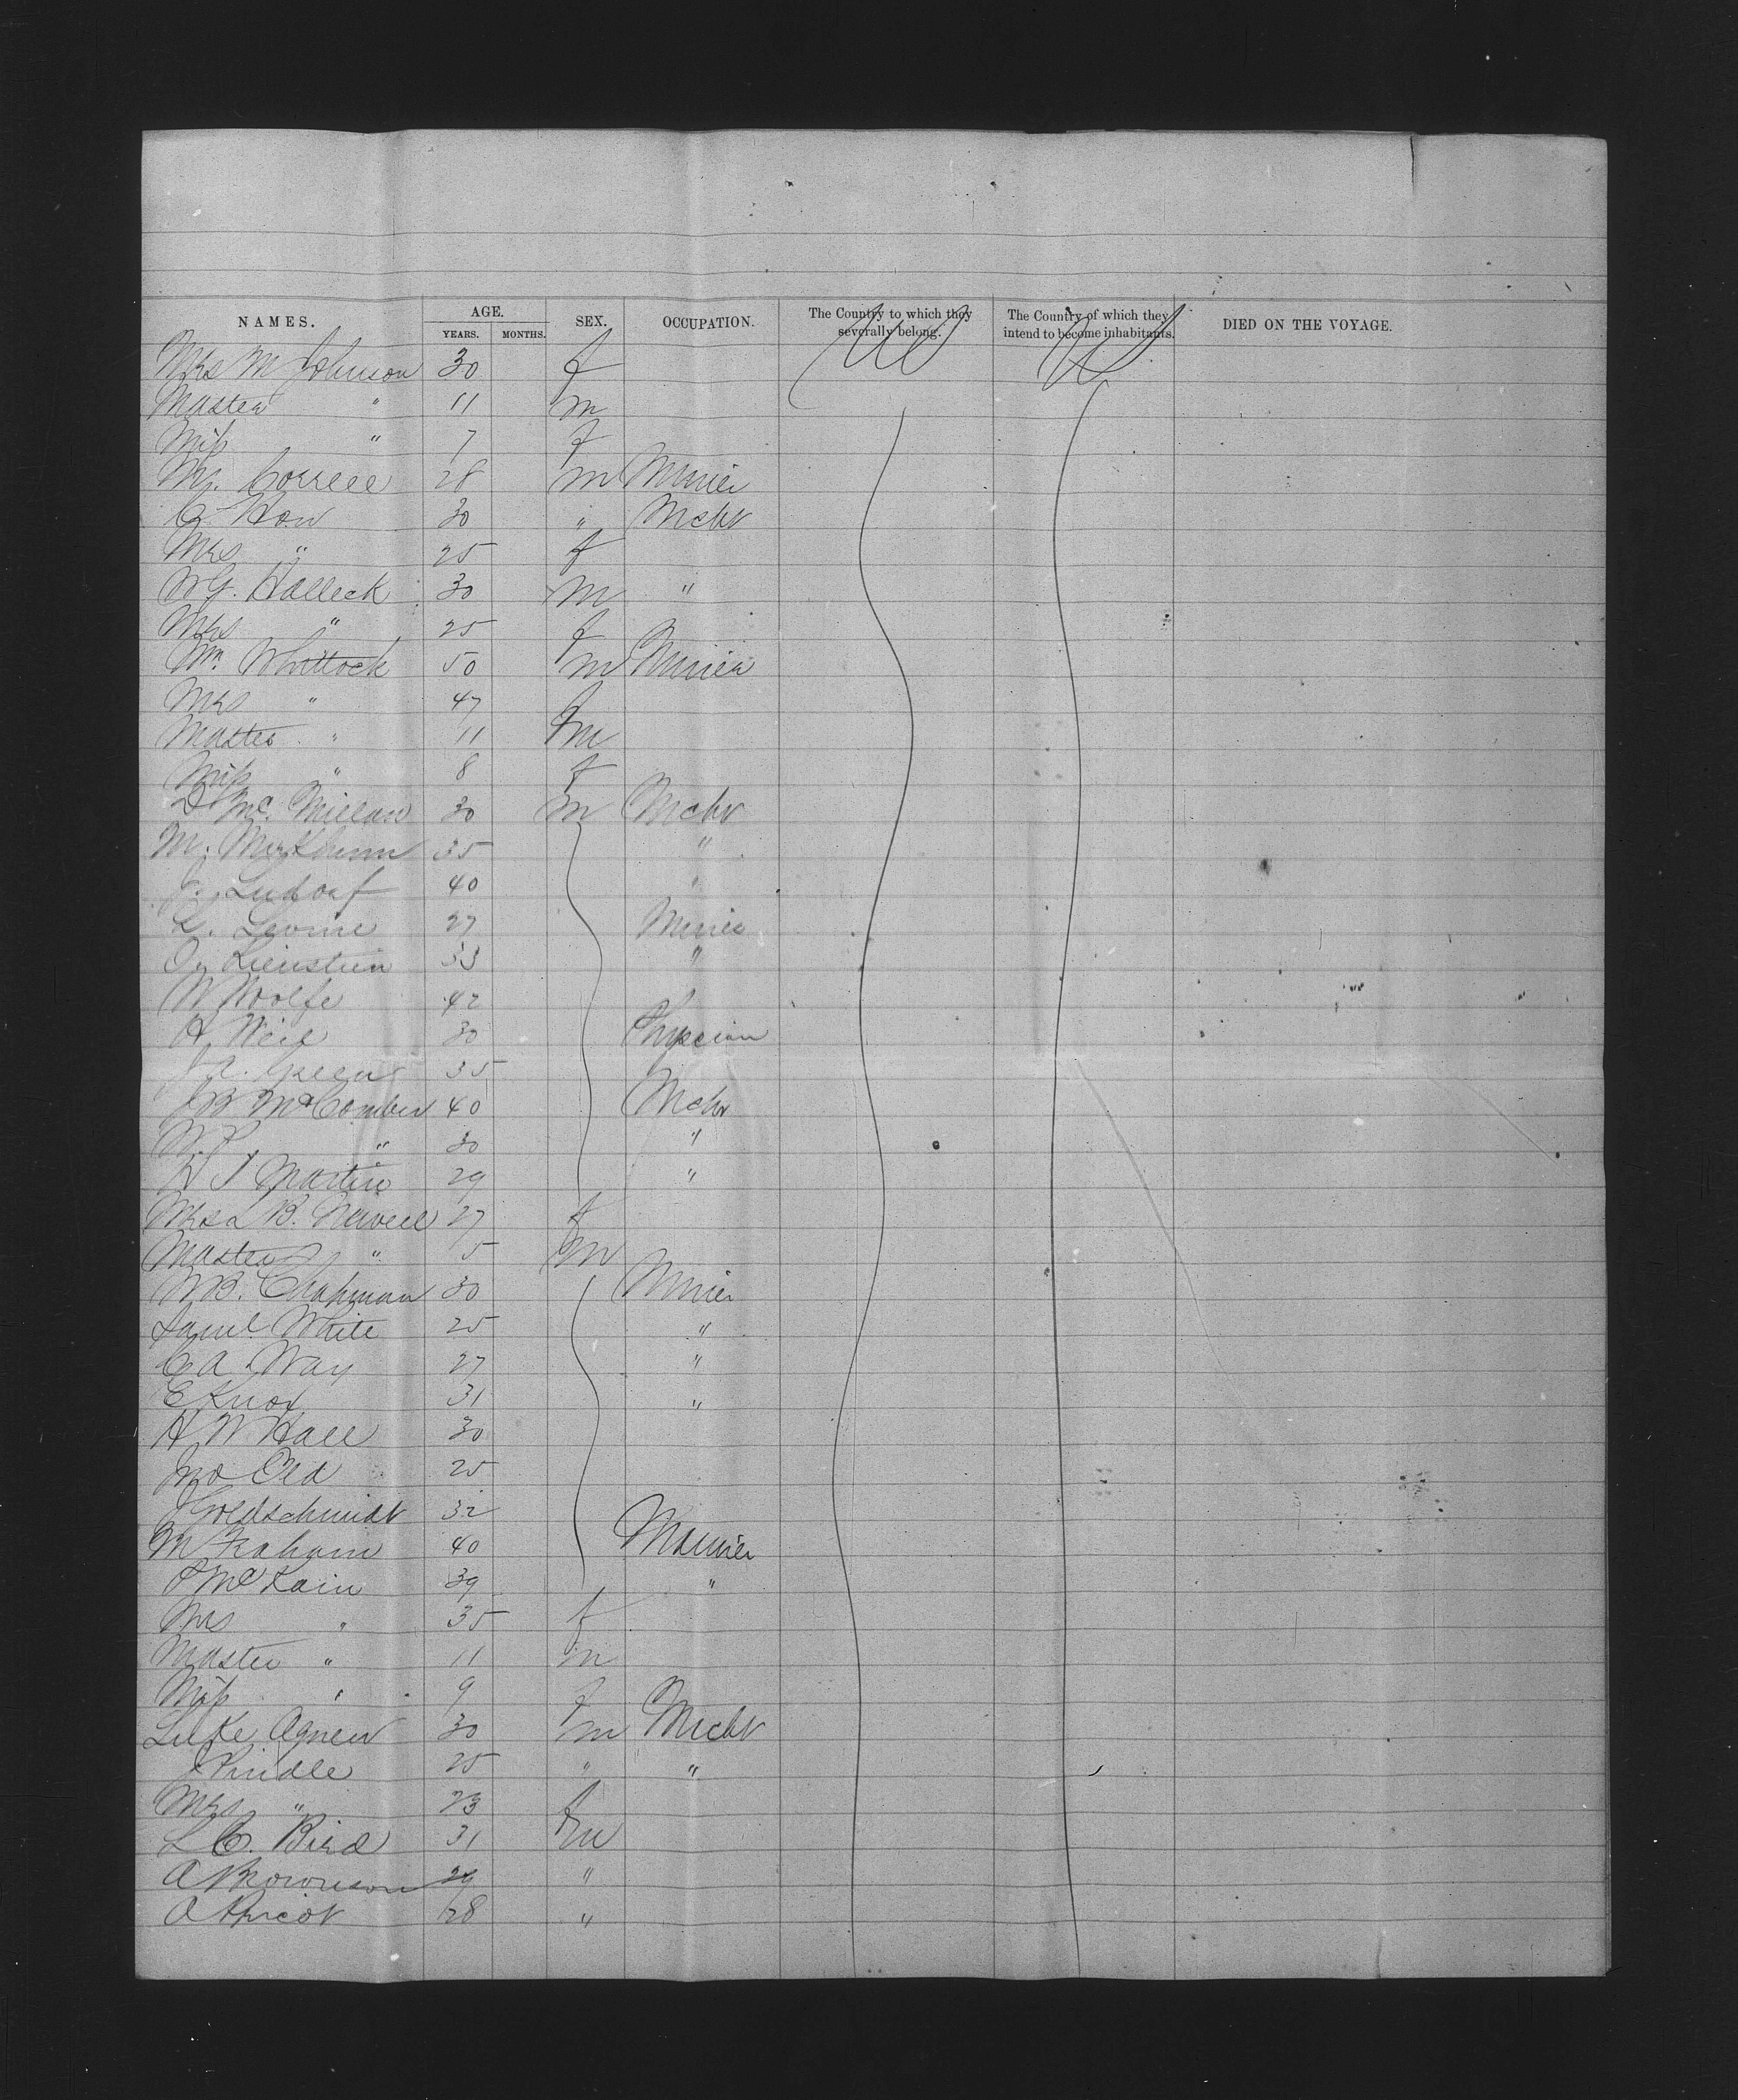 NAMES. AGE. SEX. OCCUPATION. The Country to which they severally belong. The Country of which they intend to become inhabitants. DIED ON THE VOYAGE.
YEARS. MONTHS.
Mrs M Johnson 30 f US US
Master " 11 m
Miss " 7 f
28 m Miner
C. How 30 " Mcht
Mrs " 25 f
W G. Halleck 30 m "
Mrs " 25 f
Wm. Whitlock 50 m Miner
Mrs " 47 f
Master " 11 m
Miss " 8 f
D Mc. Millan 30 m Mcht
M. 35 "
40 "
Levine 27 Miner
33 "
W Woolfe 42
H. Weil 30
J A. Green 35
J B McComber 40 Mcht
" 30 "
Martin 29 "
B. Newell 27 f
Master " 5 m
W B. Chapman 30 Miner
Saml White 25 "
C A. Way 27 "
E Knox 31 "
H W Hall 30
Jno Old 25
J Goldschmidt 32
M Graham 40
P McKain 39 "
Mrs " 35 f
Master " 11 m
Miss " 9 f
Luke Agnew 30 m Mcht
25 " "
Mrs " 23 f
L C. Bird 31 m
A Brownson 29 "
A 28 "